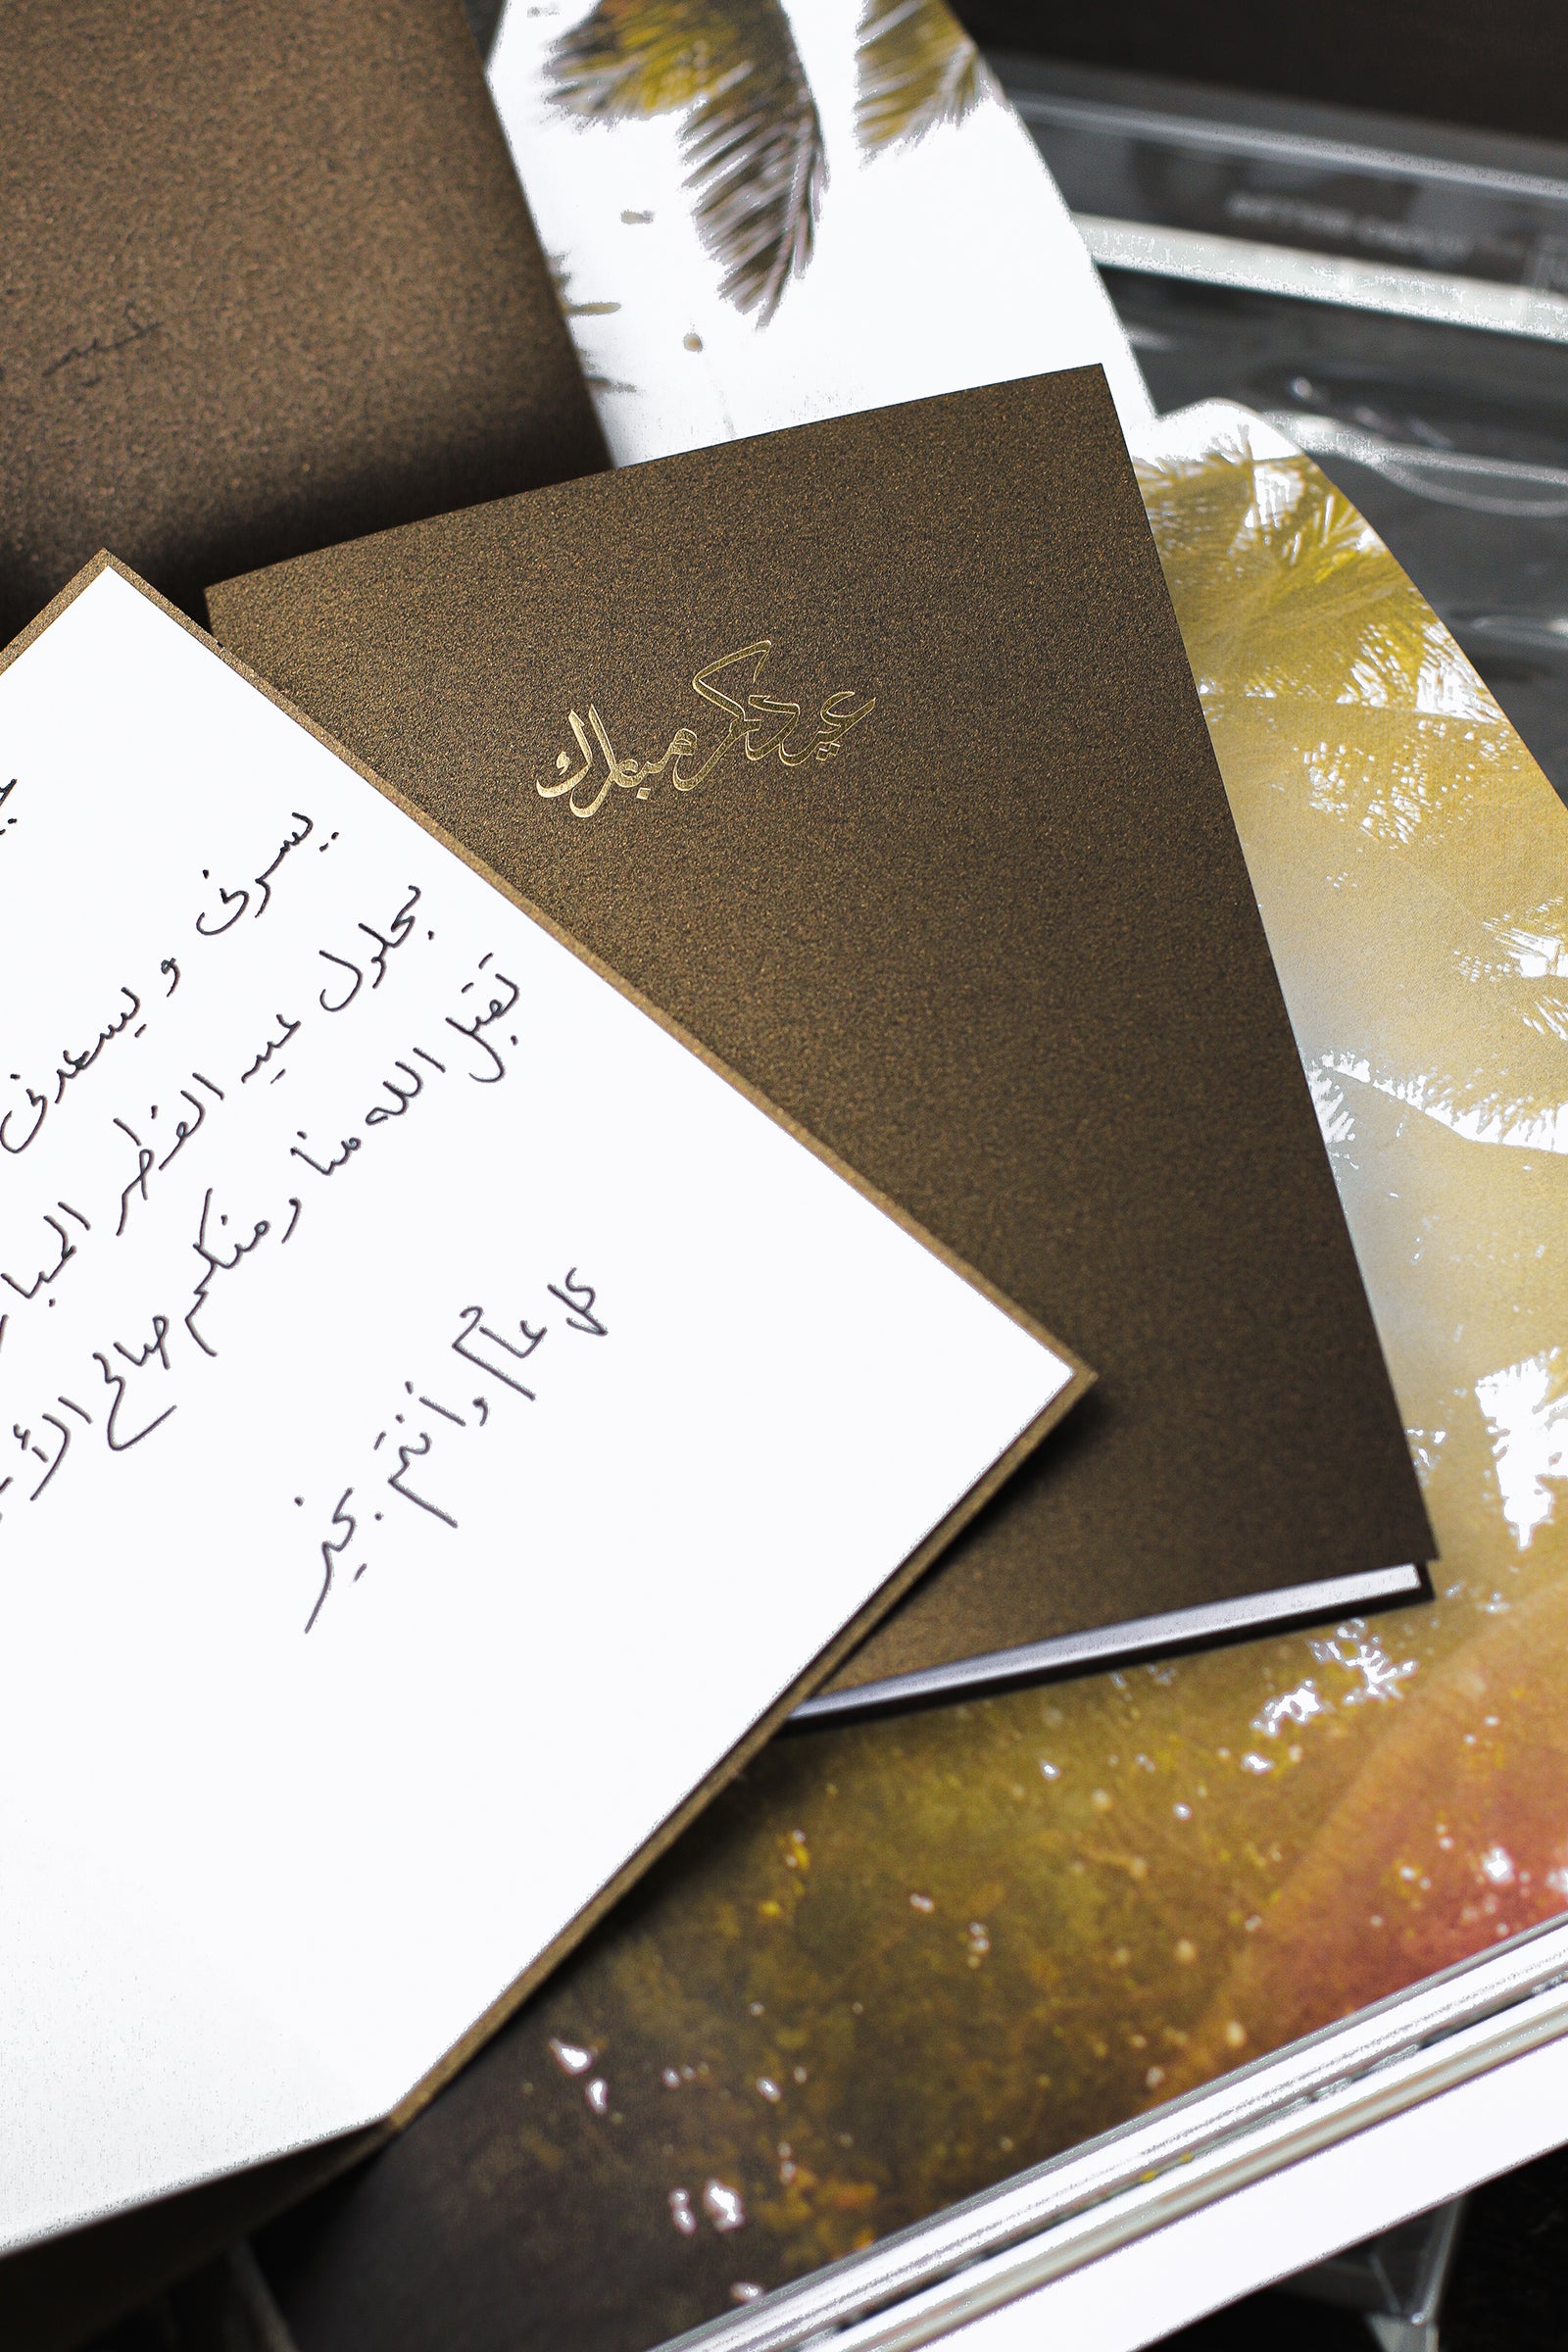 عيدكم مبارك
يسرني و يسعدني
بحلول عيد الفطر المبار
تقبل الله منا ومنكم صالح الأ
كل عام وأنتم بخير